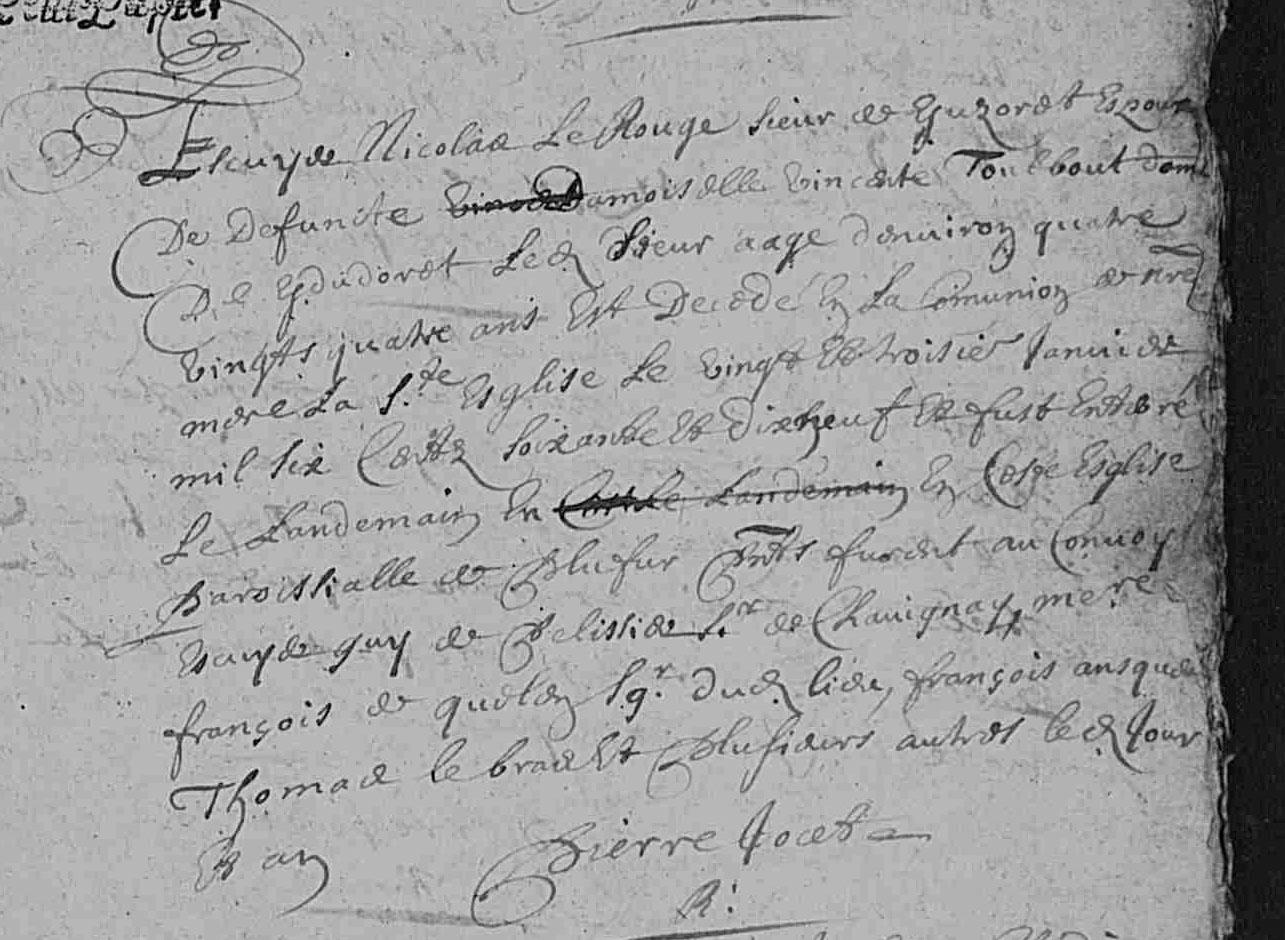 Escuyer Nicolas Le Rouge sieur de Guzoret Espoux
De Defuncte Damoiselle Vincente Toulbout dame
De Led sieur aage denuiron quatre
vingts quatre ans Est Decedé En La Comunion de nre
mere La Ste Esglise Le vingt Et troisie Januier
mil six Cents soixante Et dixneuf Et fust Enterré
Le Landemain En Le Landemain En Ceste Esglise
Paroissialle de Plufur Pnts furent au Conuoy
Escuyer guy de Pelissier Sr de Chauignay,
françois de quelen Sgr dud lieu, françois ansquer
Thomas le bras Et Plusieurs autres led Jour
Et an Pierre
R: